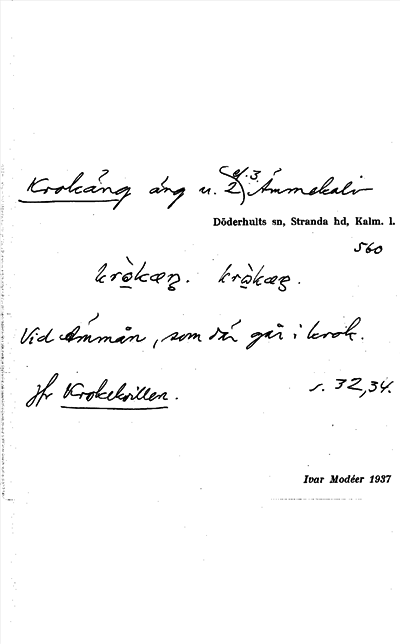 Krokäng äng u. 2) el. 3. Ämmekalv
Döderhults sn, Stranda hd, Kalm. l.
560
Vid Ämmån, som där går i krok.
jfr Krokekvillen. s. 32, 34.
Ivar Modéer 1937